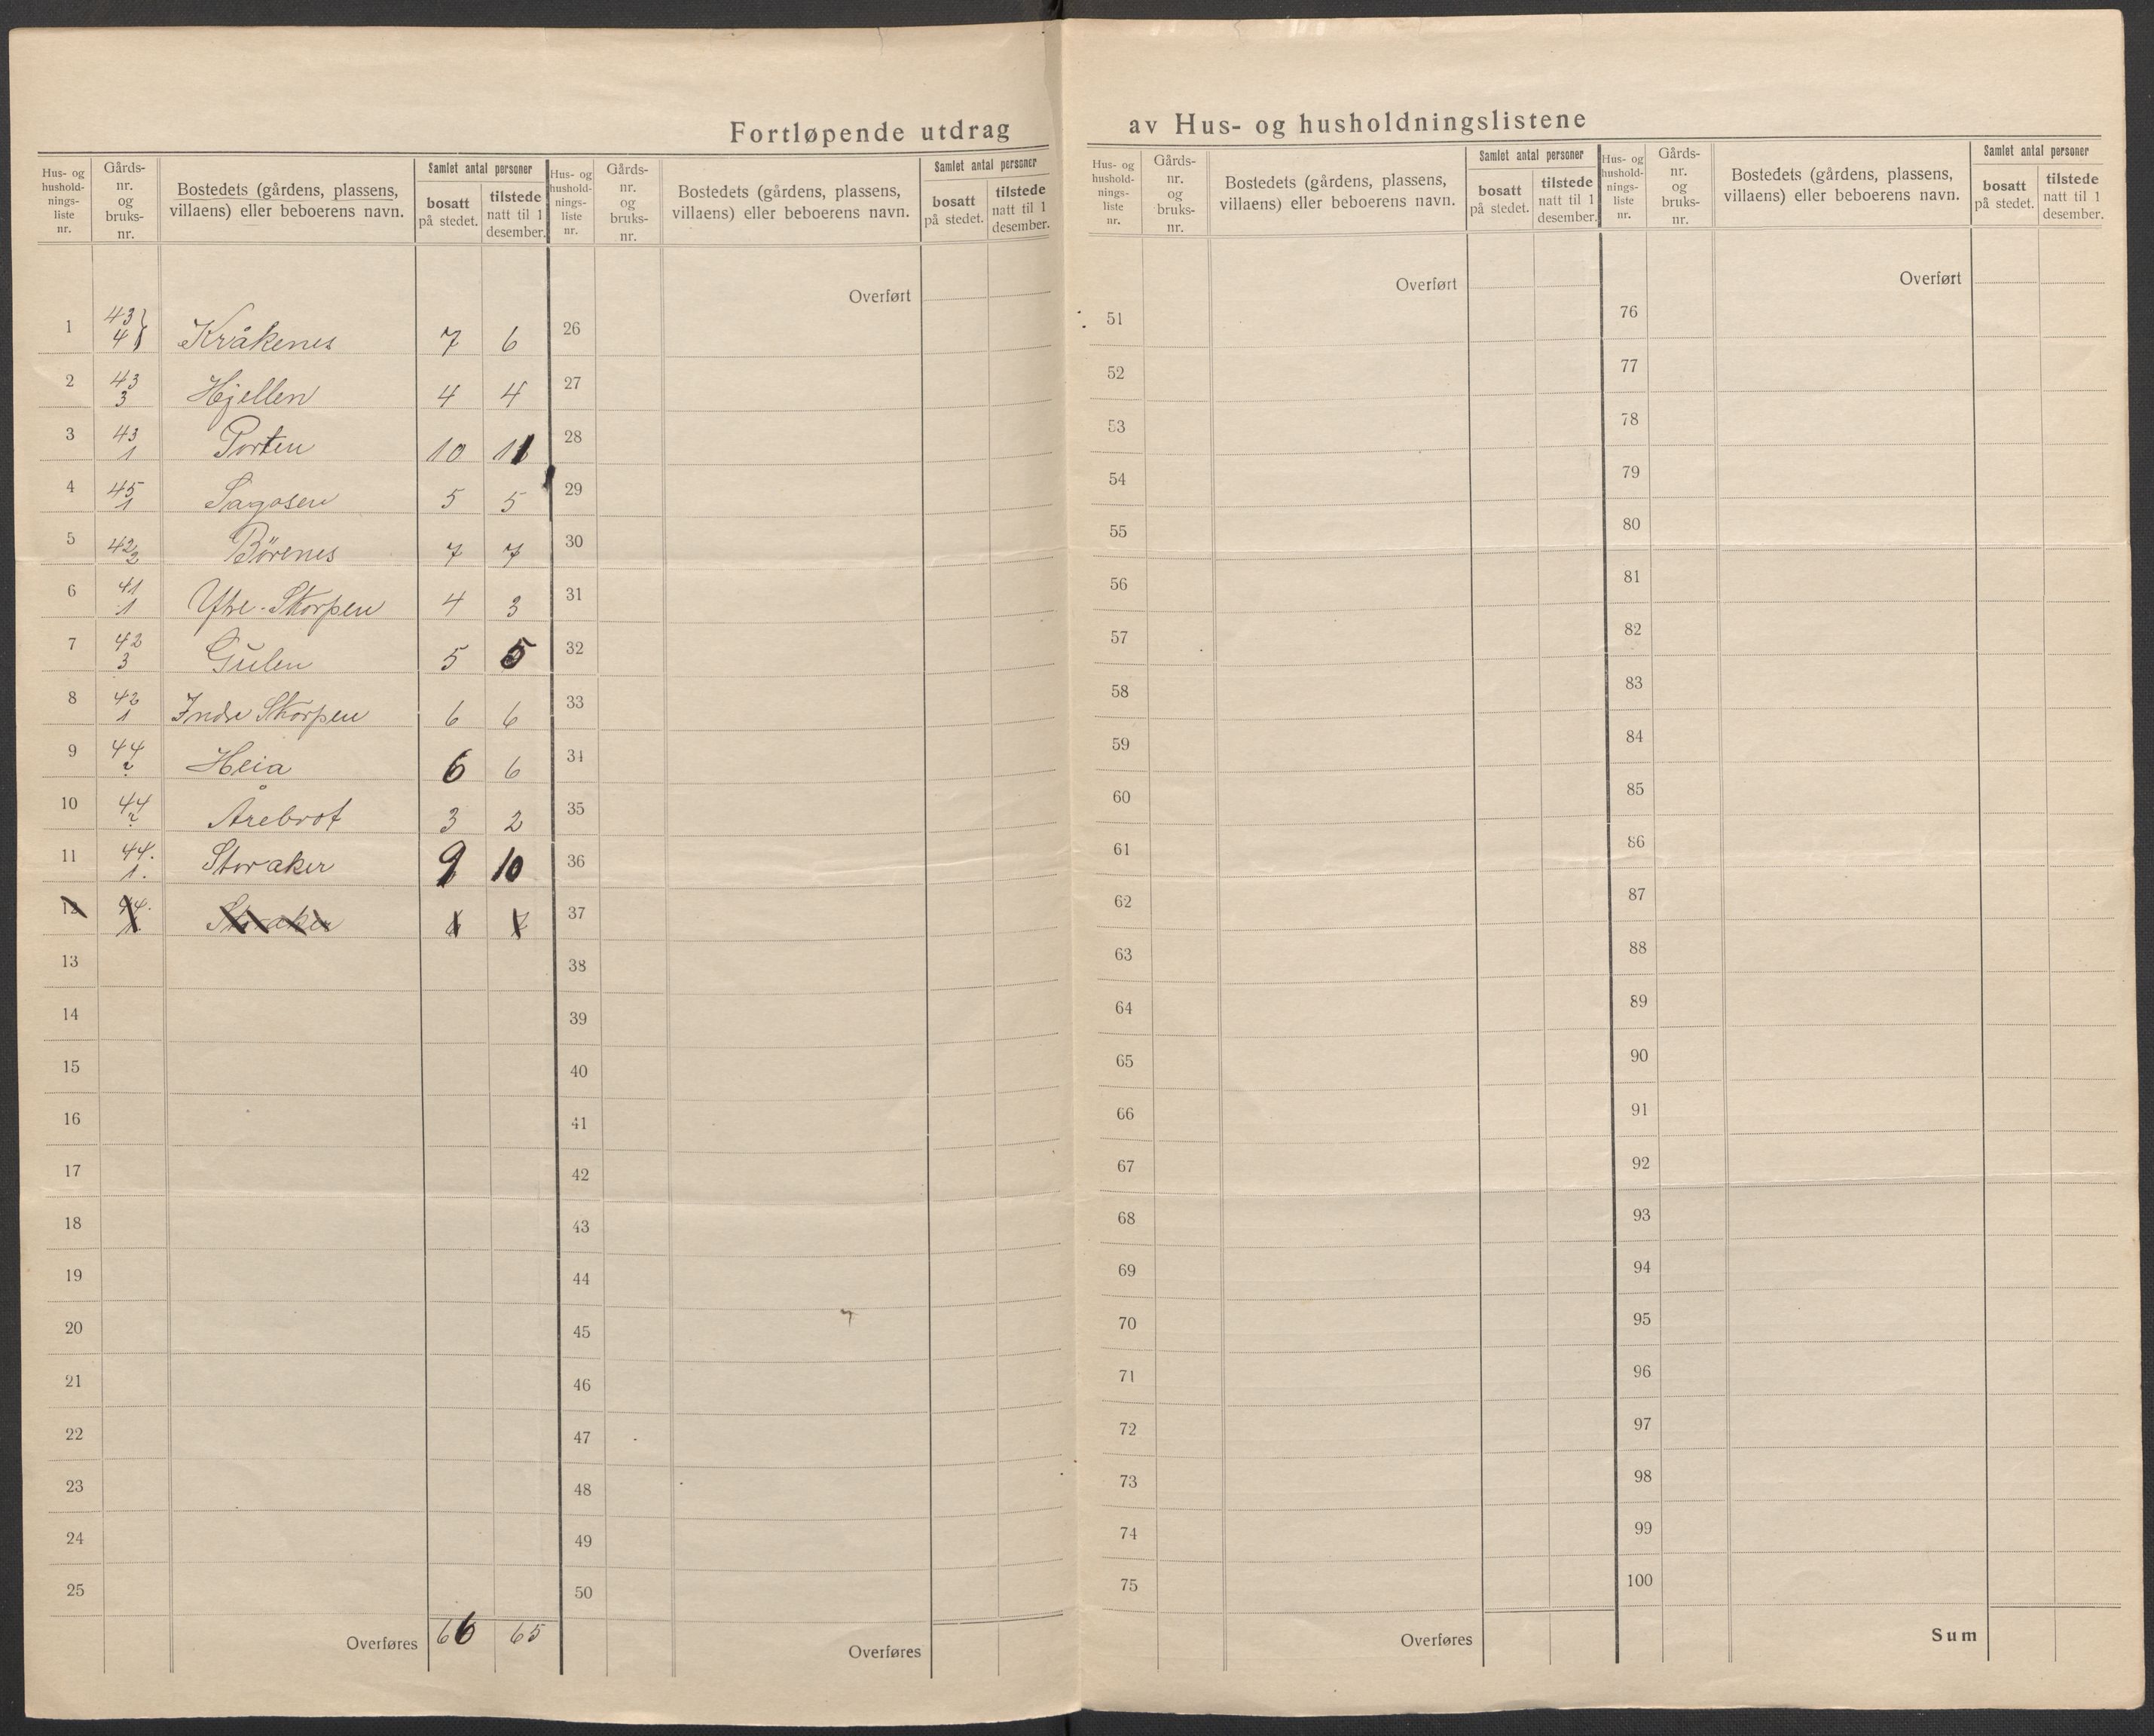 Fortløpende utdrag av Hus- og husholdningslistene
Hus- og hushold-nings-liste nr. | Gårds-nr. og bruks-nr. | Bostedets (gårdens, plassens, villaens) eller beboerens navn. | Samlet antal personer | bosatt på stedet. | tilstede natt til 1 desember.
1 | 43 4 | Kråkenes | 7 | 6
2 | 43 3 | Hjellen | 4 | 4
3 | 43 1 | Porten | 10 | 11
4 | 45 1 | Sagosen | 5 | 5
5 | 42 2 | Börenes | 7 | 7
6 | 41 1 | Ytre-Skorpen | 4 | 3
7 | 42 3 | Gŭlen | 5 | 5
8 | 42 1 | Indre Skorpen | 6 | 6
9 | 44 2 | Heia | 6 | 6
10 | 44 2 | Årebrot | 3 | 2
11 | 44. 1. | Storaker | 9 | 10
12 | 44. 1. | Storaker
13
14
15
16
17
18
19
20
21
22
23
24
25
Overføres | 66 | 65
Hus- og hushold-nings-liste nr. | Gårds-nr. og bruks-nr. | Bostedets (gårdens, plassens, villaens) eller beboerens navn. | Samlet antal personer | bosatt på stedet. | tilstede natt til 1 desember.
Overført
26
27
28
29
30
31
32
33
34
35
36
37
38
39
40
41
42
43
44
45
46
47
48
49
50
Overføres
Hus- og hushold-nings-liste nr. | Gårds-nr. og bruks-nr. | Bostedets (gårdens, plassens, villaens) eller beboerens navn. | Samlet antal personer | bosatt på stedet. | tilstede natt til 1 desember.
Overført
51
52
53
54
55
56
57
58
59
60
61
62
63
64
65
66
67
68
69
70
71
72
73
74
75
Overføres
Hus- og hushold-nings-liste nr. | Gårds-nr. og bruks-nr. | Bostedets (gårdens, plassens, villaens) eller beboerens navn. | Samlet antal personer | bosatt på stedet. | tilstede natt til 1 desember.
Overført
76
77
78
79
80
81
82
83
84
85
86
87
88
89
90
91
92
93
94
95
96
97
98
99
100
Sum